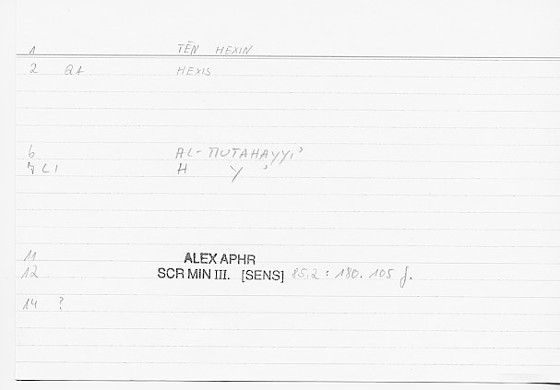 1 TĒN HEXIN
2 Q1 HEXIS
6 AL-MUTAHAYYI'
7 L1 H Y '
11 ALEX APHR
12 SCR MIN III. [SENS] 85.2 : 180. 105 f.
14 ?